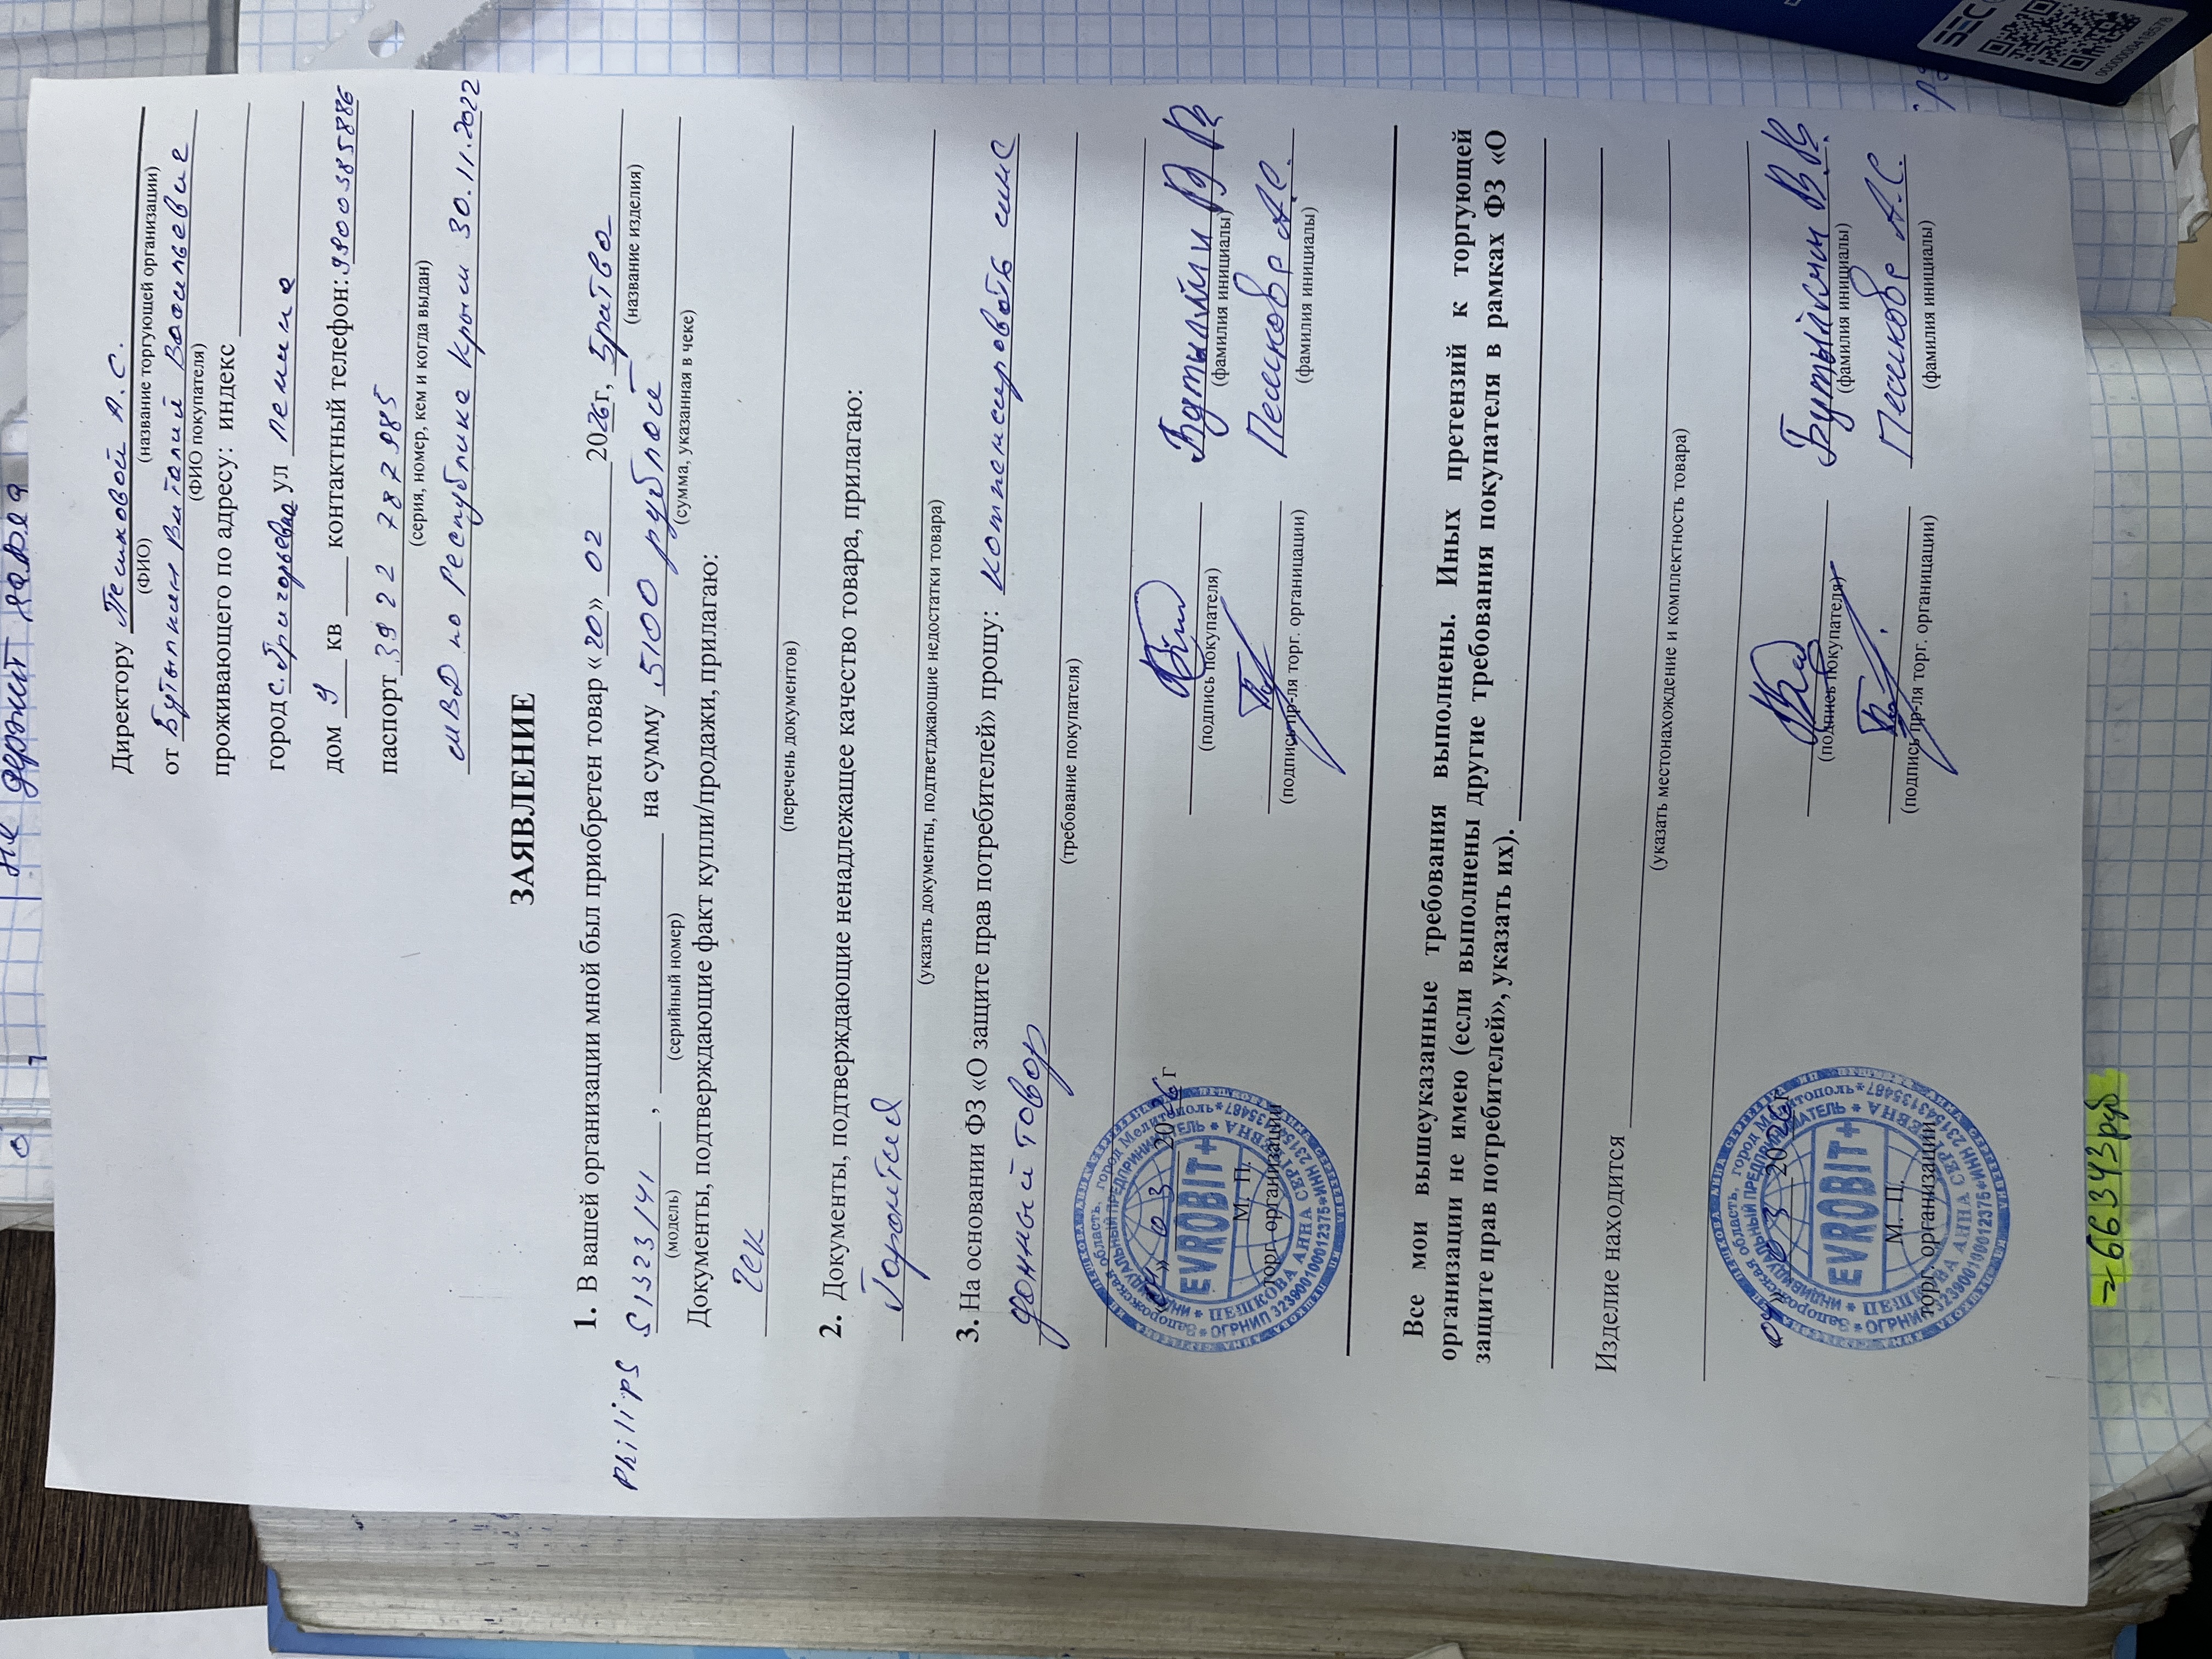 не держит заряд
Директору Пешковой А.С.
(ФИО) (название торгующей организации)
от Бутылкин Виталий Васильевич
(ФИО покупателя)
проживающего по адресу: индекс
город с. Григорьевка ул Ленина
дом 9 кв контактный телефон: 9900385886
паспорт 3922 787985
(серия, номер, кем и когда выдан)
МВД по Республике Крым 30.11.2022
ЗАЯВЛЕНИЕ
1. В вашей организации мной был приобретен товар «20» 02 2026г, бритва
(название изделия)
Philips S1323/41, , на сумму 5100 рублей
(модель) (серийный номер) (сумма, указанная в чеке)
Документы, подтверждающие факт купли/продажи, прилагаю:
Чек
(перечень документов)
2. Документы, подтверждающие ненадлежащее качество товара, прилагаю:
Гарантия
(указать документы, подтветджающие недостатки товара)
3. На основании ФЗ «О защите прав потребителей» прошу: компенсировать мне
данный товар
(требование покупателя)
«04» 03 2026г
Бутылкин В В
(подпись покупателя) (фамилия инициалы)
М. П.
торг. организации
Пешкова А.С.
(подпись пр-ля торг. органицации) (фамилия инициалы)
EVROBIT+
ИНДИВИДУАЛЬНЫЙ ПРЕДПРИНИМАТЕЛЬ * ПЕШКОВА АННА СЕРГЕЕВНА *
Запорожская область, город Мелитополь * ОГРНИП 323900100012375 * ИНН 231543135487
Все мои вышеуказанные требования выполнены. Иных претензий к торгующей
организации не имею (если выполнены другие требования покупателя в рамках ФЗ «О
защите прав потребителей», указать их).
Изделие находится
(указать местонахождение и комплектность товара)
«04» 03 2026г
Бутылкин В.В.
(подпись покупателя) (фамилия инициалы)
М. П.
торг. организации
Пешкова А.С.
(подпись пр-ля торг. органицации) (фамилия инициалы)
EVROBIT+
ИНДИВИДУАЛЬНЫЙ ПРЕДПРИНИМАТЕЛЬ * ПЕШКОВА АННА СЕРГЕЕВНА *
Запорожская область, город Мелитополь * ОГРНИП 323900100012375 * ИНН 231543135487
=66343руб
SEC
000000041B578